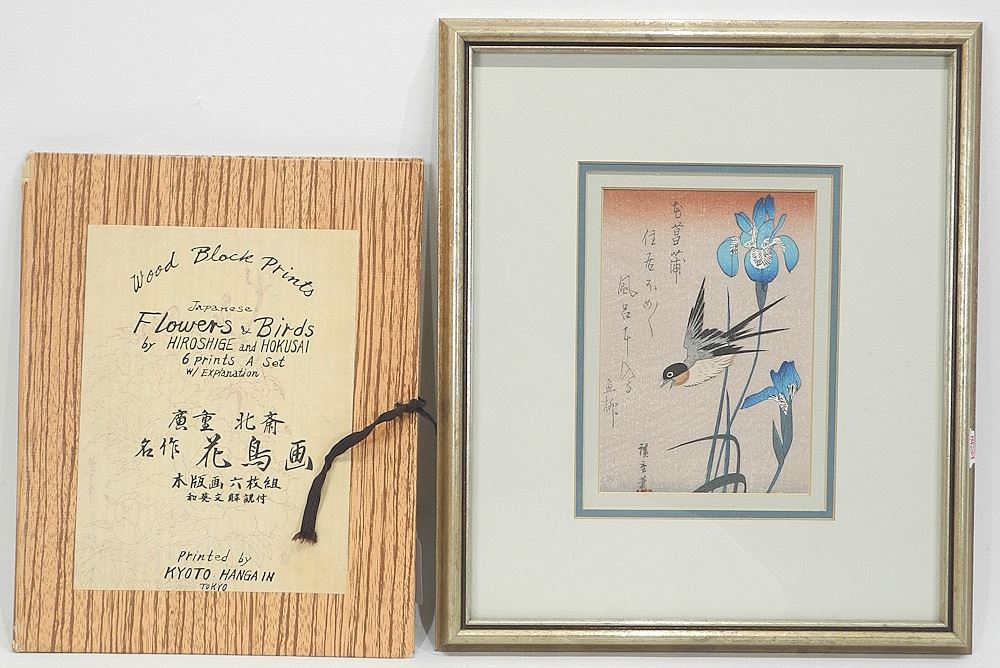 Wood Block Prints
Japanese
Flowers & Birds
by HIROSHIGE and HOKUSAI
6 prints A Set
w/ Explanation
廣重 北斎
名作 花鳥画
木版画六枚組
和英文解説付
printed by
KYOTO HANGAIN
TOKYO
菖蒲
住居
風呂